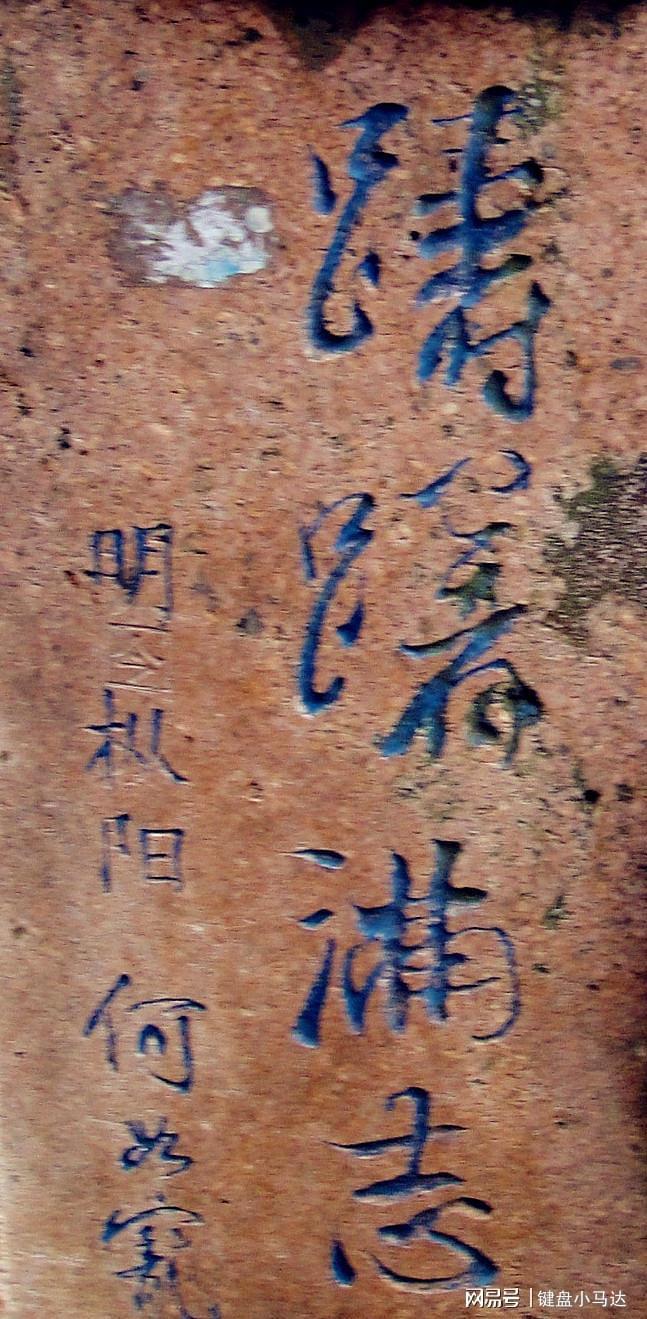 踌躇满志
明 枞阳 何如宠
网易号 | 键盘小马达